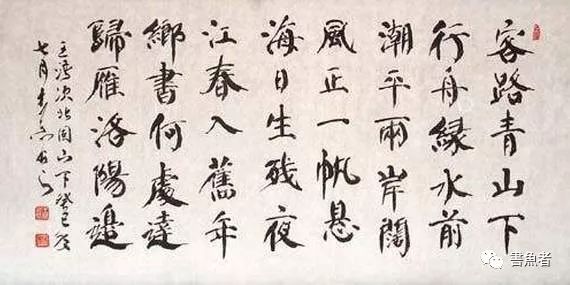 客路青山下
行舟緑水前
潮平兩岸闊
風正一帆悬
海日生残夜
江春入舊年
鄉書何處達
歸雁洛陽邊
王湾次北固山下癸巳
七月
書魚者